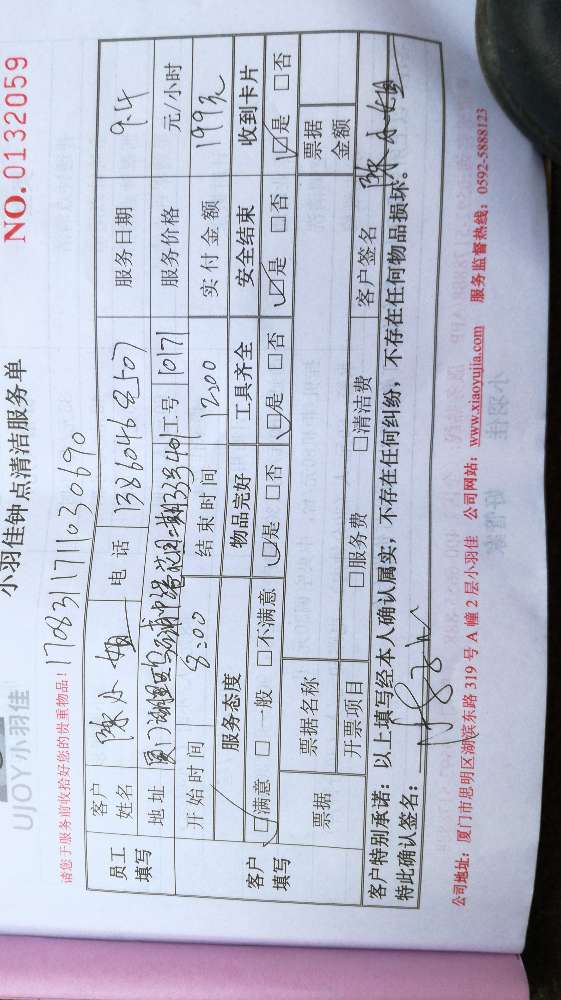 UJOY小羽佳
小羽佳钟点清洁服务单
NO.0132059
请您于服务前收拾好您的贵重物品!
170831171030690
员工填写 客户姓名 陈小姐 电话 13860464507 服务日期 9.4
地址 工号 10171 服务价格 元/小时
开始时间 8:00 结束时间 12:00 实付金额 199元
客户填写 服务态度 物品完好 工具齐全 安全结束 收到卡片
☑满意 □一般 □不满意 ☑是 □否 ☑是 □否 ☑是 □否 ☑是 □否
票据 票据名称 票据金额
开票项目 □服务费 □清洁费 客户签名 陈小姐
客户特别承诺:以上填写经本人确认属实,不存在任何纠纷,不存在任何物品损坏。
特此确认签名:
公司地址:厦门市思明区湖滨东路319号A幢2层小羽佳 公司网站:www.xiaoyujia.com 服务监督热线:0592-5888123